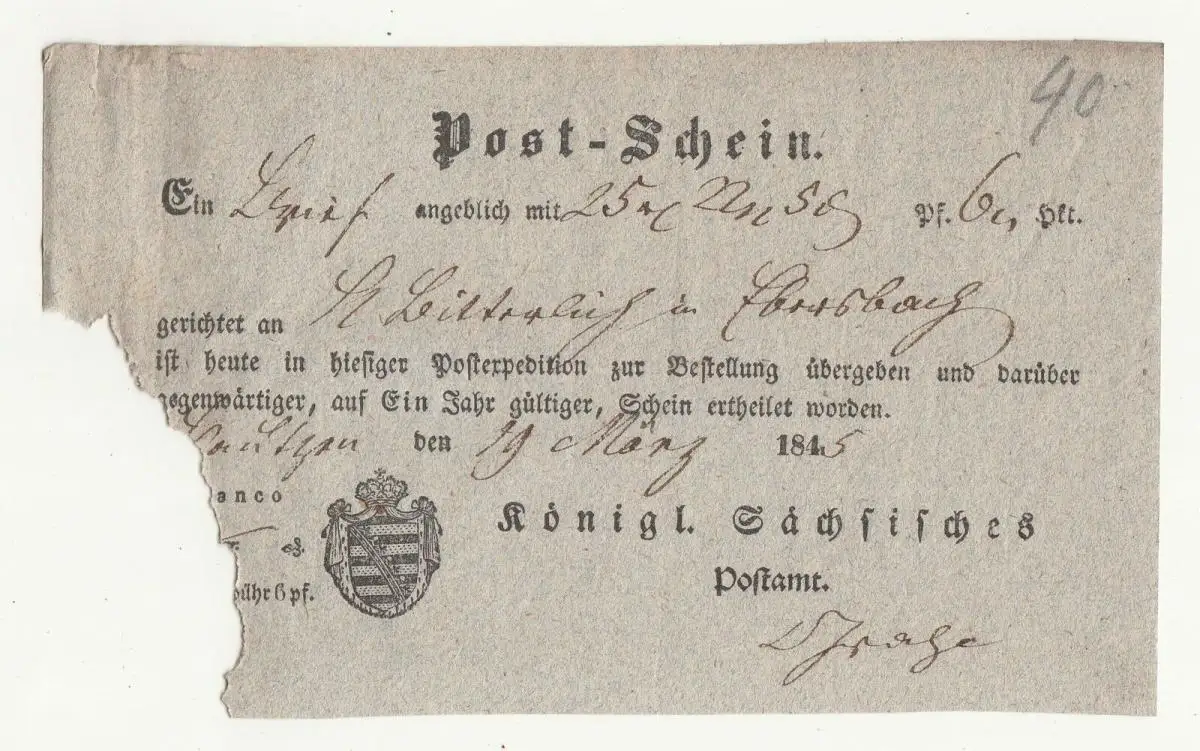 40
Post-Schein.
Ein Brief angeblich mit 25 Pf. 6 Hkt.
gerichtet an Bitterlich in Ebersbach
ist heute in hiesiger Postexpedition zur Bestellung übergeben und darüber
gegenwärtiger, auf Ein Jahr gültiger, Schein ertheilet worden.
Bautzen den 19 März 1845
anco
Königl. Sächsisches
Postamt.
bühr 6 pf.